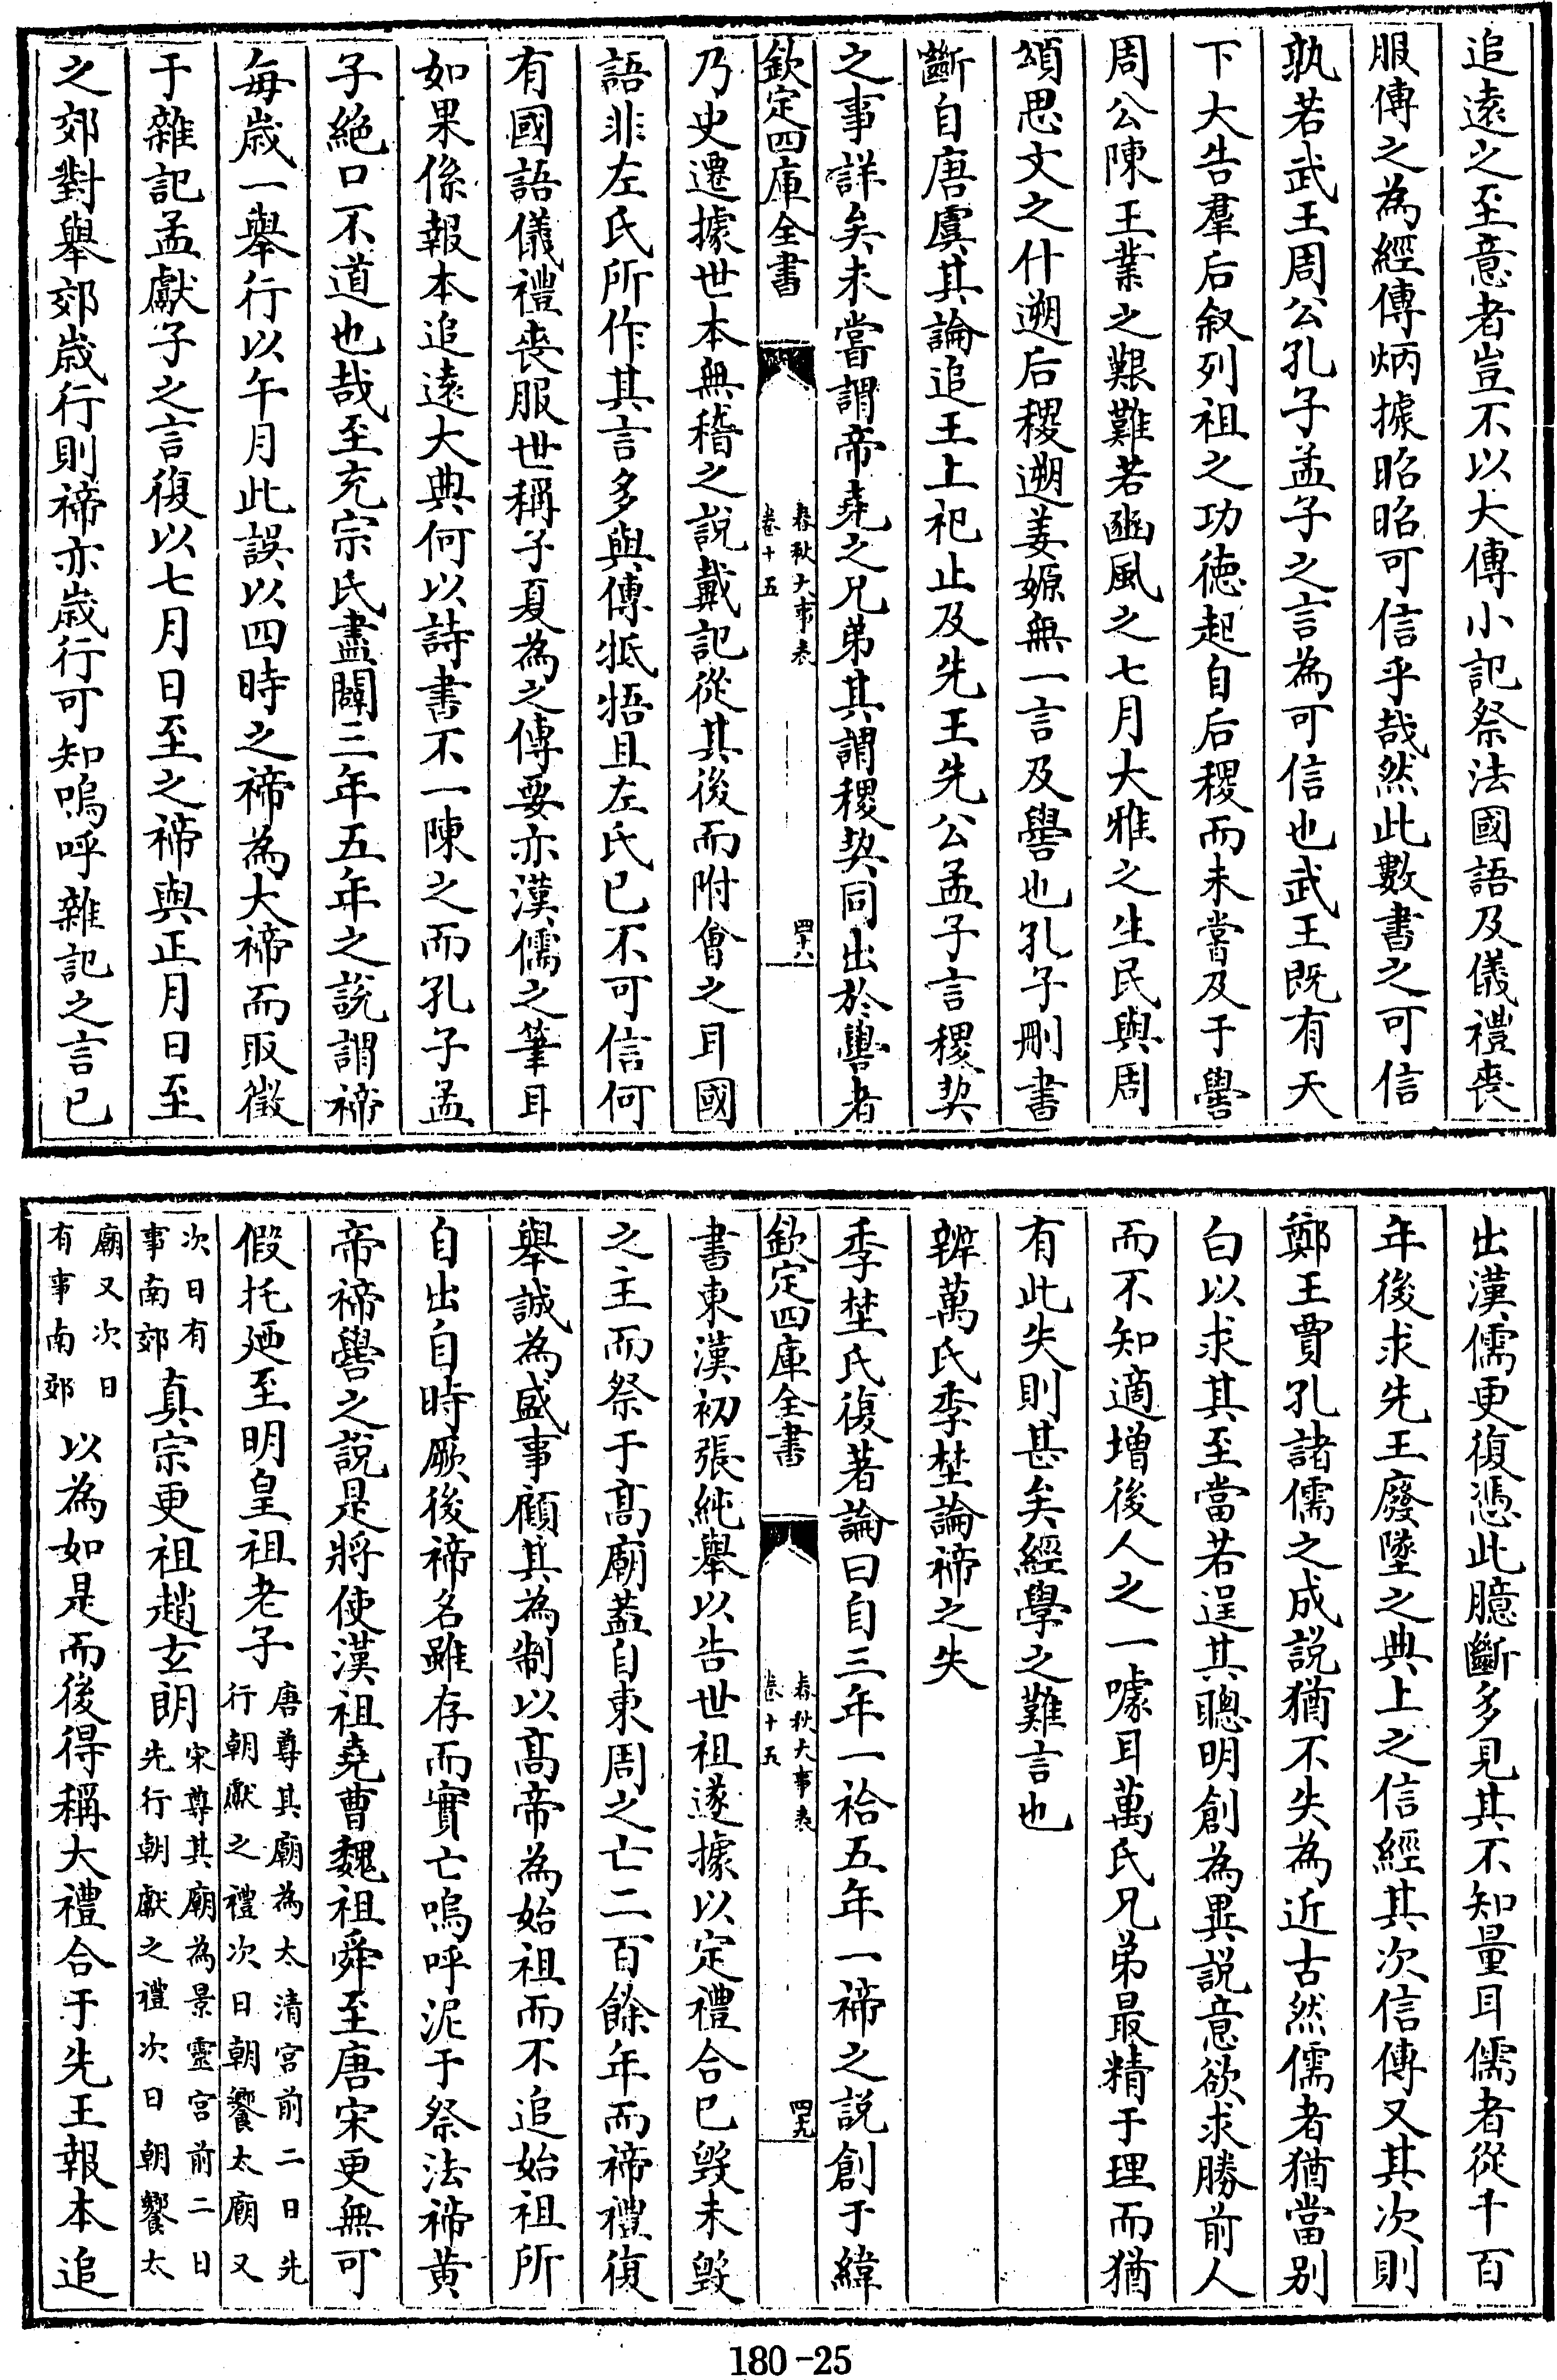 追遠之至意者豈不以大傳小記祭法國語及儀禮喪
服傳之為經傳炳據昭昭可信乎哉然此數書之可信
孰若武王周公孔子孟子之言為可信也武王既有天
下大告羣后叙列祖之功徳起自后稷而未嘗及于嚳
周公陳王業之艱難若豳風之七月大雅之生民與周
頌思文之什遡后稷遡姜嫄無一言及嚳也孔子刪書
斷自唐虞其論追王上祀止及先王先公孟子言稷契
之事詳矣未嘗謂帝堯之兄弟其謂稷契同出於嚳者
欽定四庫全書
春秋大事表
卷十五
四十八
乃史遷據世本無稽之說戴記從其後而附會之耳國
語非左氏所作其言多與傳牴牾且左氏已不可信何
有國語儀禮喪服世稱子夏為之傳要亦漢儒之筆耳
如果係報本追遠大典何以詩書不一陳之而孔子孟
子絶口不道也哉至充宗氏盡闢三年五年之說謂禘
每歲一舉行以午月此誤以四時之禘為大禘而取徵
于雜記孟獻子之言復以七月日至之禘與正月日至
之郊對舉郊歲行則禘亦歲行可知嗚呼雜記之言已
出漢儒更復憑此臆斷多見其不知量耳儒者從千百
年後求先王廢墜之典上之信經其次信傳又其次則
鄭王賈孔諸儒之成說猶不失為近古然儒者猶當别
白以求其至當若逞其聰明創為異說意欲求勝前人
而不知適增後人之一噱耳萬氏兄弟最精于理而猶
有此失則甚矣經學之難言也
辨萬氏季埜論禘之失
季埜氏復著論曰自三年一祫五年一禘之說創于緯
欽定四庫全書
春秋大事表
卷十五
四十九
書東漢初張純舉以告世祖遂據以定禮合已毀未毀
之主而祭于高廟蓋自東周之亡二百餘年而禘禮復
舉誠為盛事顧其為制以高帝為始祖而不追始祖所
自出自時厥後禘名雖存而實亡嗚呼泥于祭法禘黄
帝禘嚳之說是將使漢祖堯曹魏祖舜至唐宋更無可
假托廼至明皇祖老子唐尊其廟為太清宫前二日先
行朝獻之禮次日朝饗太廟又
次日有
事南郊真宗更祖趙玄朗宋尊其廟為景靈宫前二日
先行朝獻之禮次日朝饗太
廟又次日
有事南郊以為如是而後得稱大禮合于先王報本追
180-25